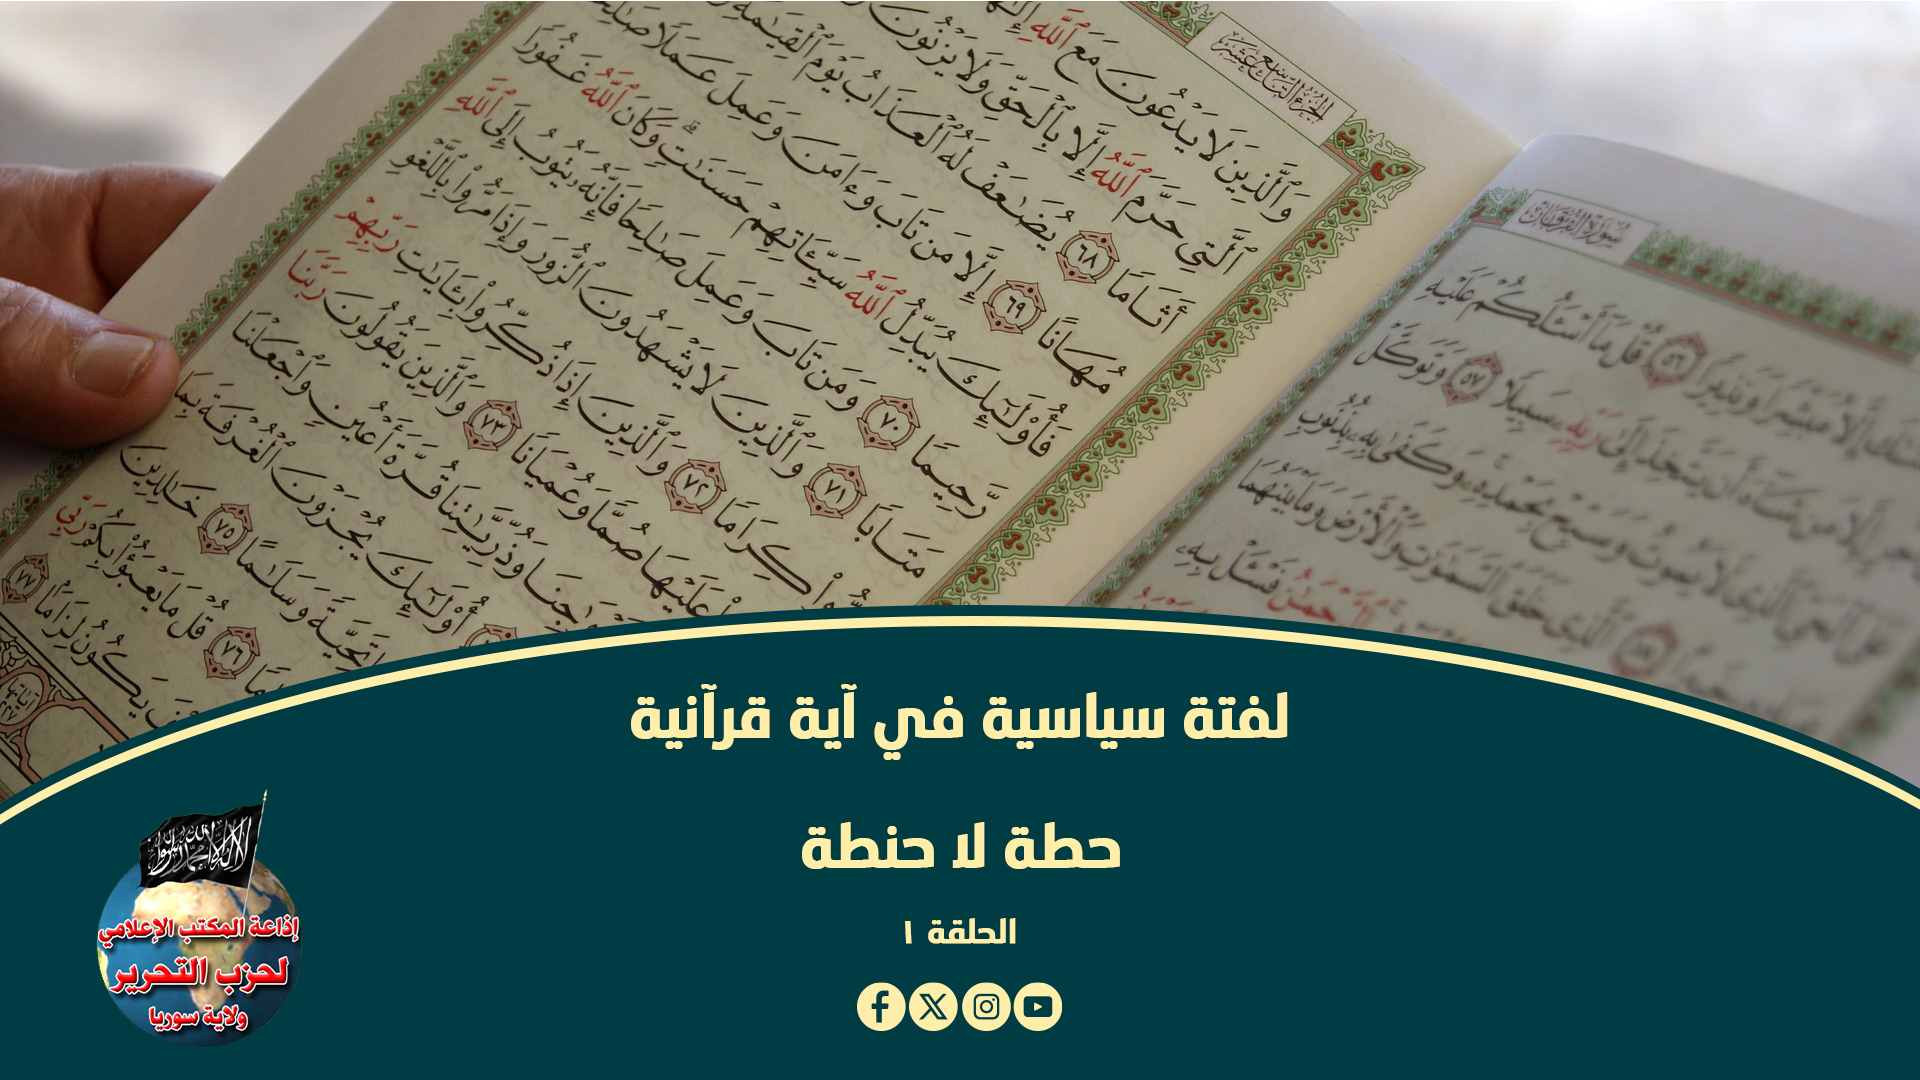 الجزء التاسع عشر
وَٱلَّذِينَ لَا يَدْعُونَ مَعَ ٱللَّهِ
ٱلَّتِي حَرَّمَ ٱللَّهُ إِلَّا بِٱلْحَقِّ وَلَا يَزْنُونَ
أَثَامًا ٦٨ يُضَٰعَفْ لَهُ ٱلْعَذَابُ يَوْمَ ٱلْقِيَٰمَةِ
مُهَانًا ٦٩ إِلَّا مَن تَابَ وَءَامَنَ وَعَمِلَ عَمَلًا صَٰلِحًا
فَأُو۟لَٰٓئِكَ يُبَدِّلُ ٱللَّهُ سَيِّـَٔاتِهِمْ حَسَنَٰتٍ وَكَانَ ٱللَّهُ غَفُورًا
رَّحِيمًا ٧٠ وَمَن تَابَ وَعَمِلَ صَٰلِحًا فَإِنَّهُۥ يَتُوبُ إِلَى ٱللَّهِ
مَتَابًا ٧١ وَٱلَّذِينَ لَا يَشْهَدُونَ ٱلزُّورَ وَإِذَا مَرُّوا۟ بِٱللَّغْوِ
كِرَامًا ٧٢ وَٱلَّذِينَ إِذَا ذُكِّرُوا۟ بِـَٔايَٰتِ رَبِّهِمْ
عَلَيْهَا صُمًّا وَعُمْيَانًا ٧٣ وَٱلَّذِينَ يَقُولُونَ رَبَّنَا
وَذُرِّيَّٰتِنَا قُرَّةَ أَعْيُنٍ وَٱجْعَلْنَا
أُو۟لَٰٓئِكَ يُجْزَوْنَ ٱلْغُرْفَةَ بِمَا
تَحِيَّةً وَسَلَٰمًا ٧٥ خَٰلِدِينَ
٧٦ قُلْ مَا يَعْبَؤُا۟ بِكُمْ رَبِّي
يَكُونُ لِزَامًا ٧٧
سورة الفرقان
إِلَّا مُبَشِّرًا وَنَذِيرًا ٥٦ قُلْ مَآ أَسْـَٔلُكُمْ عَلَيْهِ
إِلَّا مَن شَآءَ أَن يَتَّخِذَ إِلَىٰ رَبِّهِۦ سَبِيلًا ٥٧ وَتَوَكَّلْ
عَلَى ٱلْحَيِّ ٱلَّذِى لَا يَمُوتُ وَسَبِّحْ بِحَمْدِهِۦ وَكَفَىٰ بِهِۦ بِذُنُوبِ
ٱلَّذِى خَلَقَ ٱلسَّمَٰوَٰتِ وَٱلْأَرْضَ وَمَا بَيْنَهُمَا
ٱلرَّحْمَٰنُ فَسْـَٔلْ بِهِۦ
لفتة سياسية في آية قرآنية
حطة لا حنطة
الحلقة ١
لا إله إلا الله محمد رسول الله
إذاعة المكتب الإعلامي
لحزب التحرير
ولاية سوريا